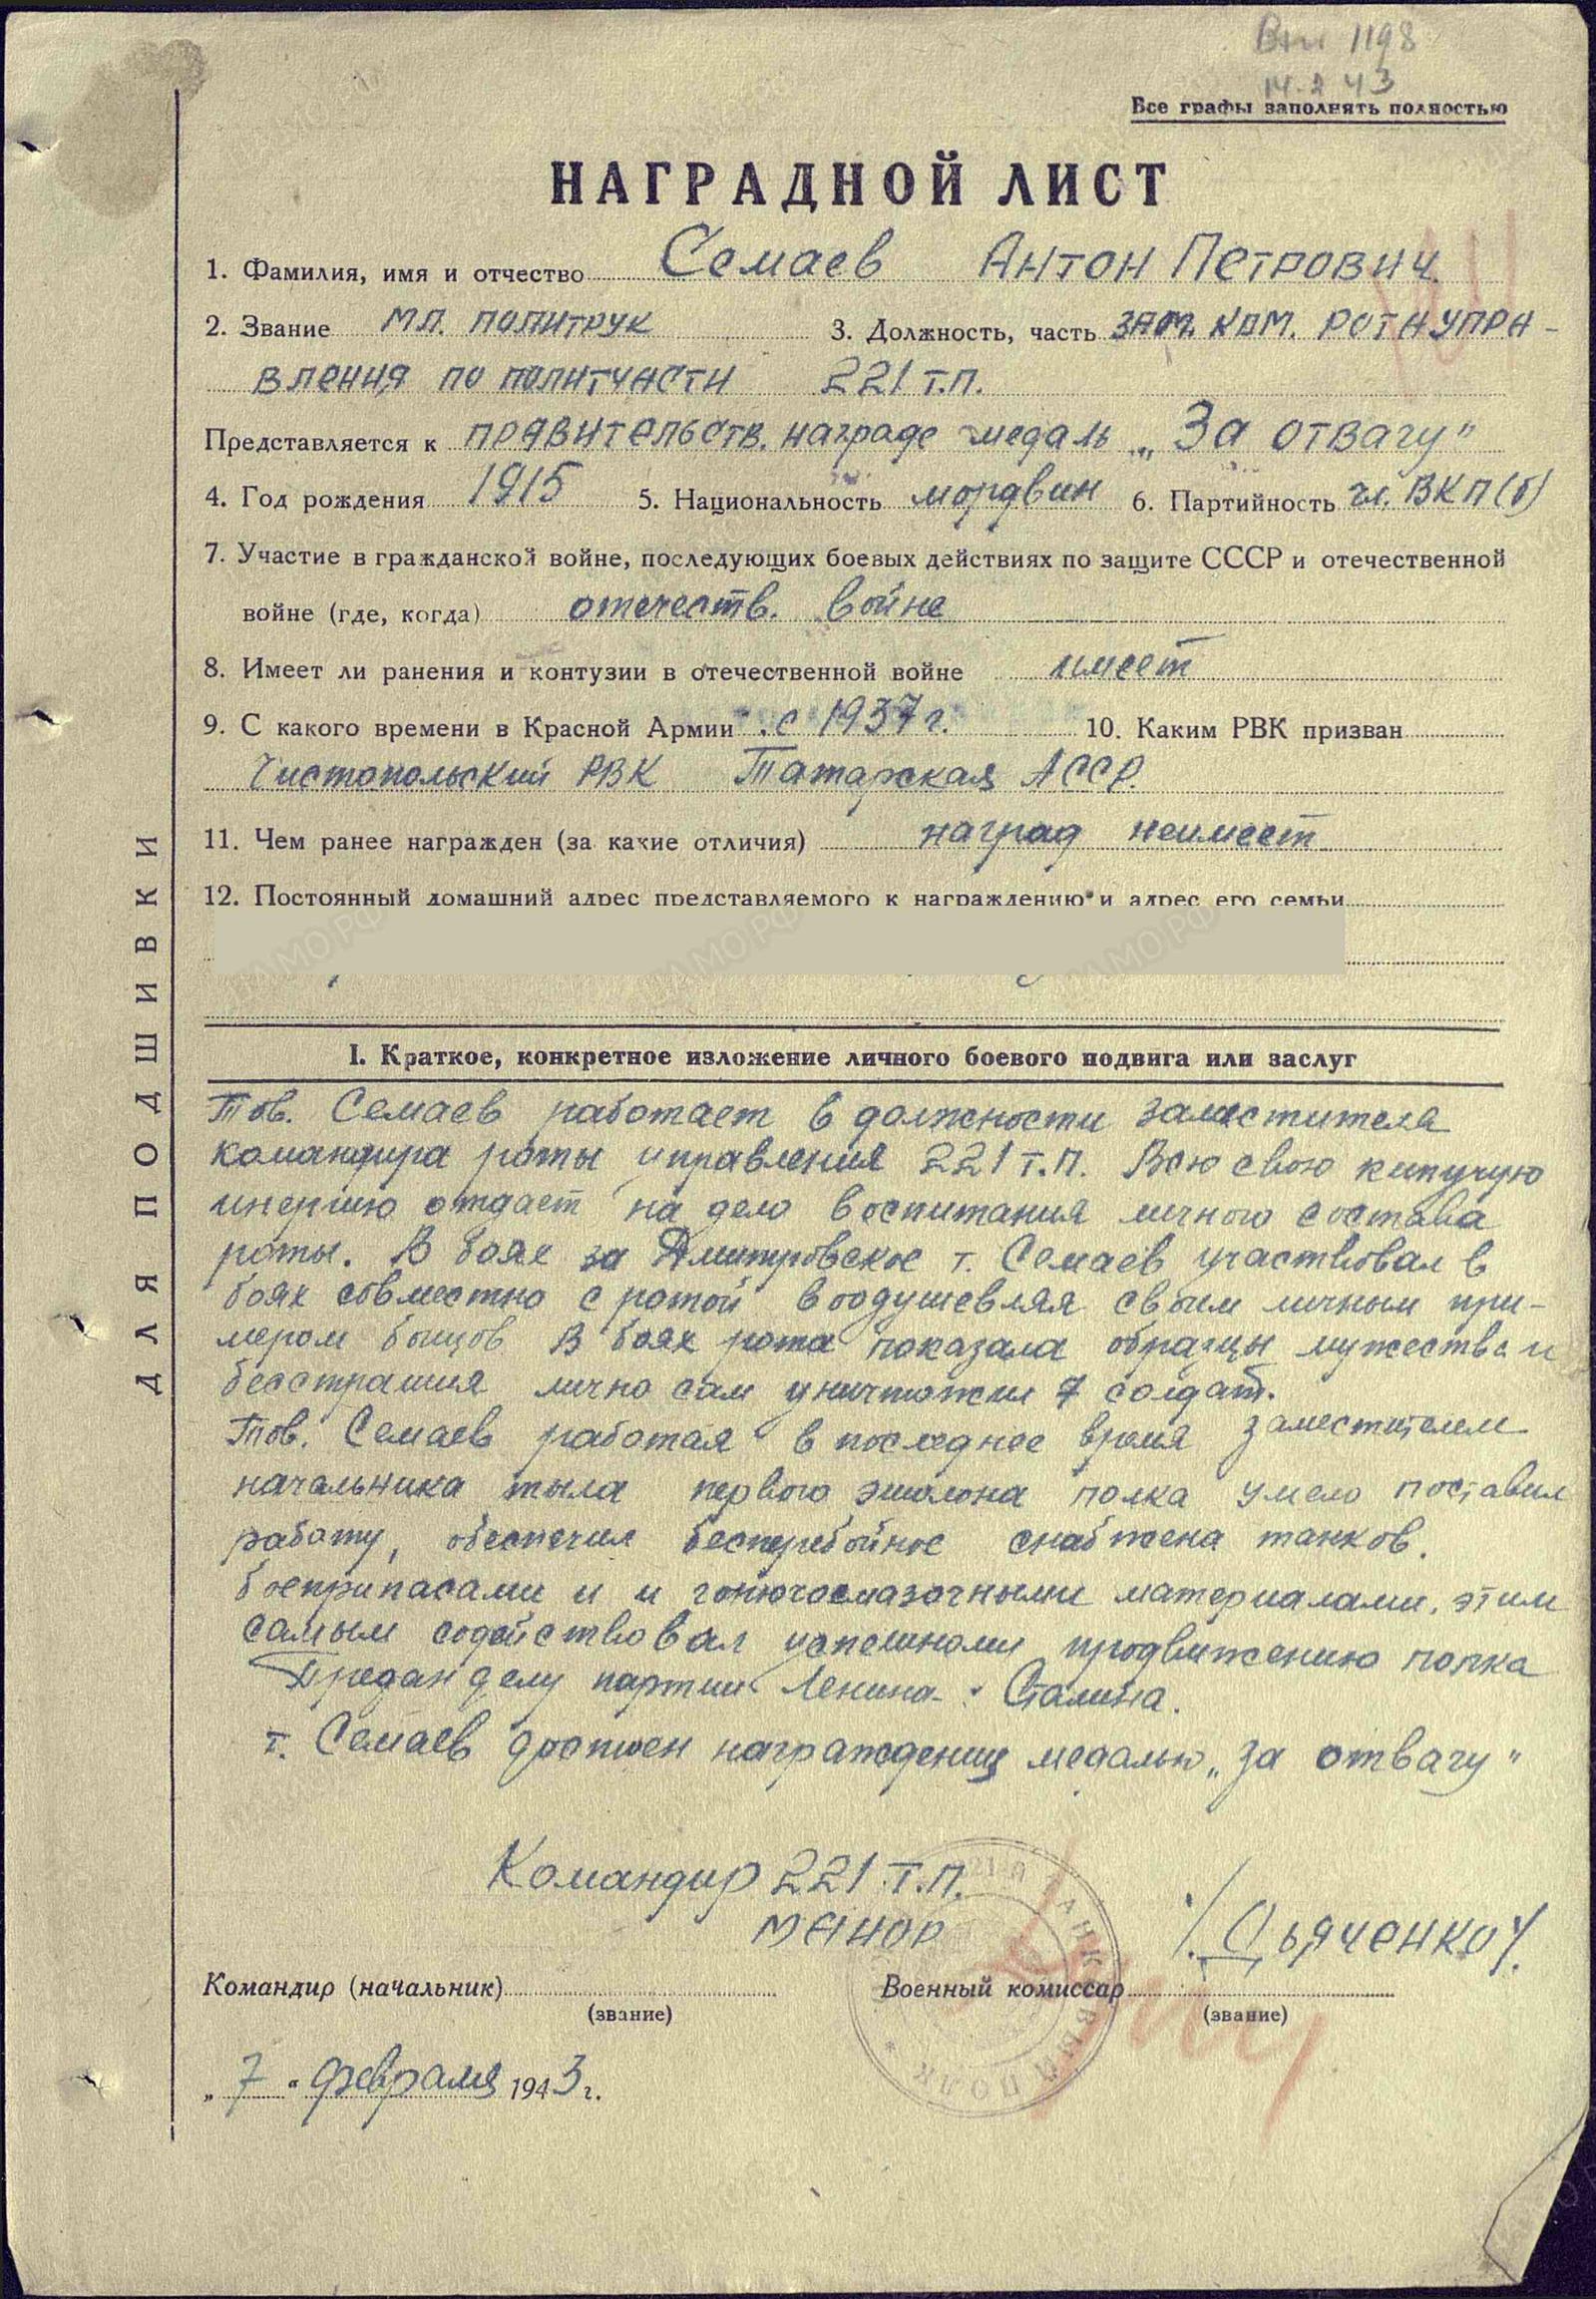 Вхн 1198
14.2 43
Все графы заполнять полностью
НАГРАДНОЙ ЛИСТ
1. Фамилия, имя и отчество Семаев Антон Петрович.
2. Звание мл. политрук 3. Должность, часть зам. ком. рот упра-
вления по политчасти 221 т.п.
Представляется к правительств. награде медаль „За отвагу"
4. Год рождения 1915 5. Национальность мордвин 6. Партийность чл. ВКП(б)
7. Участие в гражданской войне, последующих боевых действиях по защите СССР и отечественной
войне (где, когда) отечеств. войне
8. Имеет ли ранения и контузии в отечественной войне имеет
9. С какого времени в Красной Армии с 1937 г. 10. Каким РВК призван
Чистопольский РВК Татарская АССР.
11. Чем ранее награжден (за какие отличия) наград неимеет
12. Постоянный домашний адрес представляемого к награждению и адрес его семьи
I. Краткое, конкретное изложение личного боевого подвига или заслуг
Тов. Семаев работает в должности заместителя
командира роты управления 221 т.п. Всю свою кипучую
инергию отдает на дело воспитания личного состава
роты. В боях за Дмитровское т. Семаев участвовал в
боях совместно с ротой воодушевляя своим личным при-
мером бойцов В боях рота показала образцы мужества и
бесстрашия лично сам уничтожил 7 солдат.
Тов. Семаев работая в последнее время заместителем
начальника тыла первого эшолона полка умело поставил
работу, обеспечил бесперебойное снабжена танков.
боеприпасами и и горючосмазочными материалами, этим
самым содействовал успешному продвижению полка
Предан делу партии Ленина - Сталина.
т. Семаев достоен награждения медалью „За отвагу"
Командир 221 т.п.
майор /Дьяченко/.
Командир (начальник) Военный комиссар
(звание) (звание)
„7" февраля 1943 г.
ДЛЯ ПОДШИВКИ
221 ТАНКОВЫЙ ПОЛК